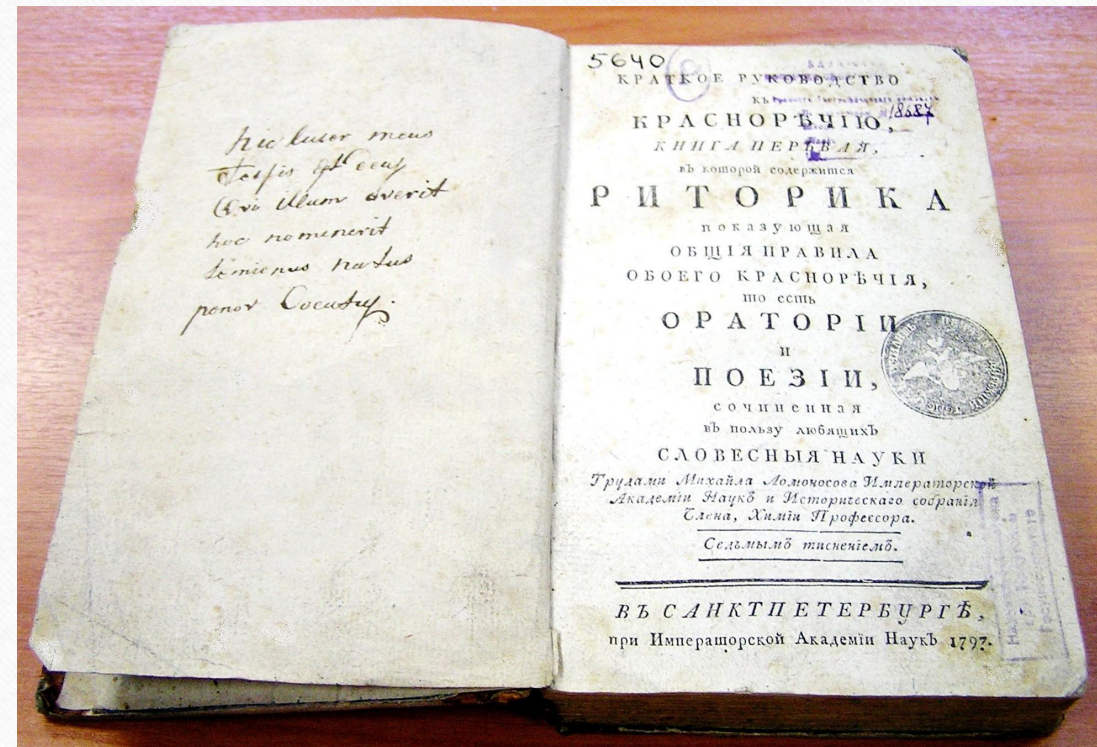 hic liber meus
Testis est
illum
hoc nomen erit
natus
ponor
5640
КРАТКОЕ РУКОВОДСТВО
КЪ
18687
КРАСНОРѢЧІЮ,
КНИГА ПЕРЬВАЯ,
въ которой содержится
РИТОРИКА
показующая
ОБЩІЯ ПРАВИЛА
ОБОЕГО КРАСНОРѢЧІЯ,
то есть
ОРАТОРІИ
И
ПОЕЗІИ,
сочиненная
въ пользу любящихъ
СЛОВЕСНЫЯ НАУКИ
Трудами Михайла Ломоносова Императорской
Академіи Наукъ и Историческаго собранія
Члена, Химіи Профессора.
Седьмымъ тисненіемъ.
ВЪ САНКТПЕТЕРБУРГѢ,
при Императорской Академіи Наукъ 1797.